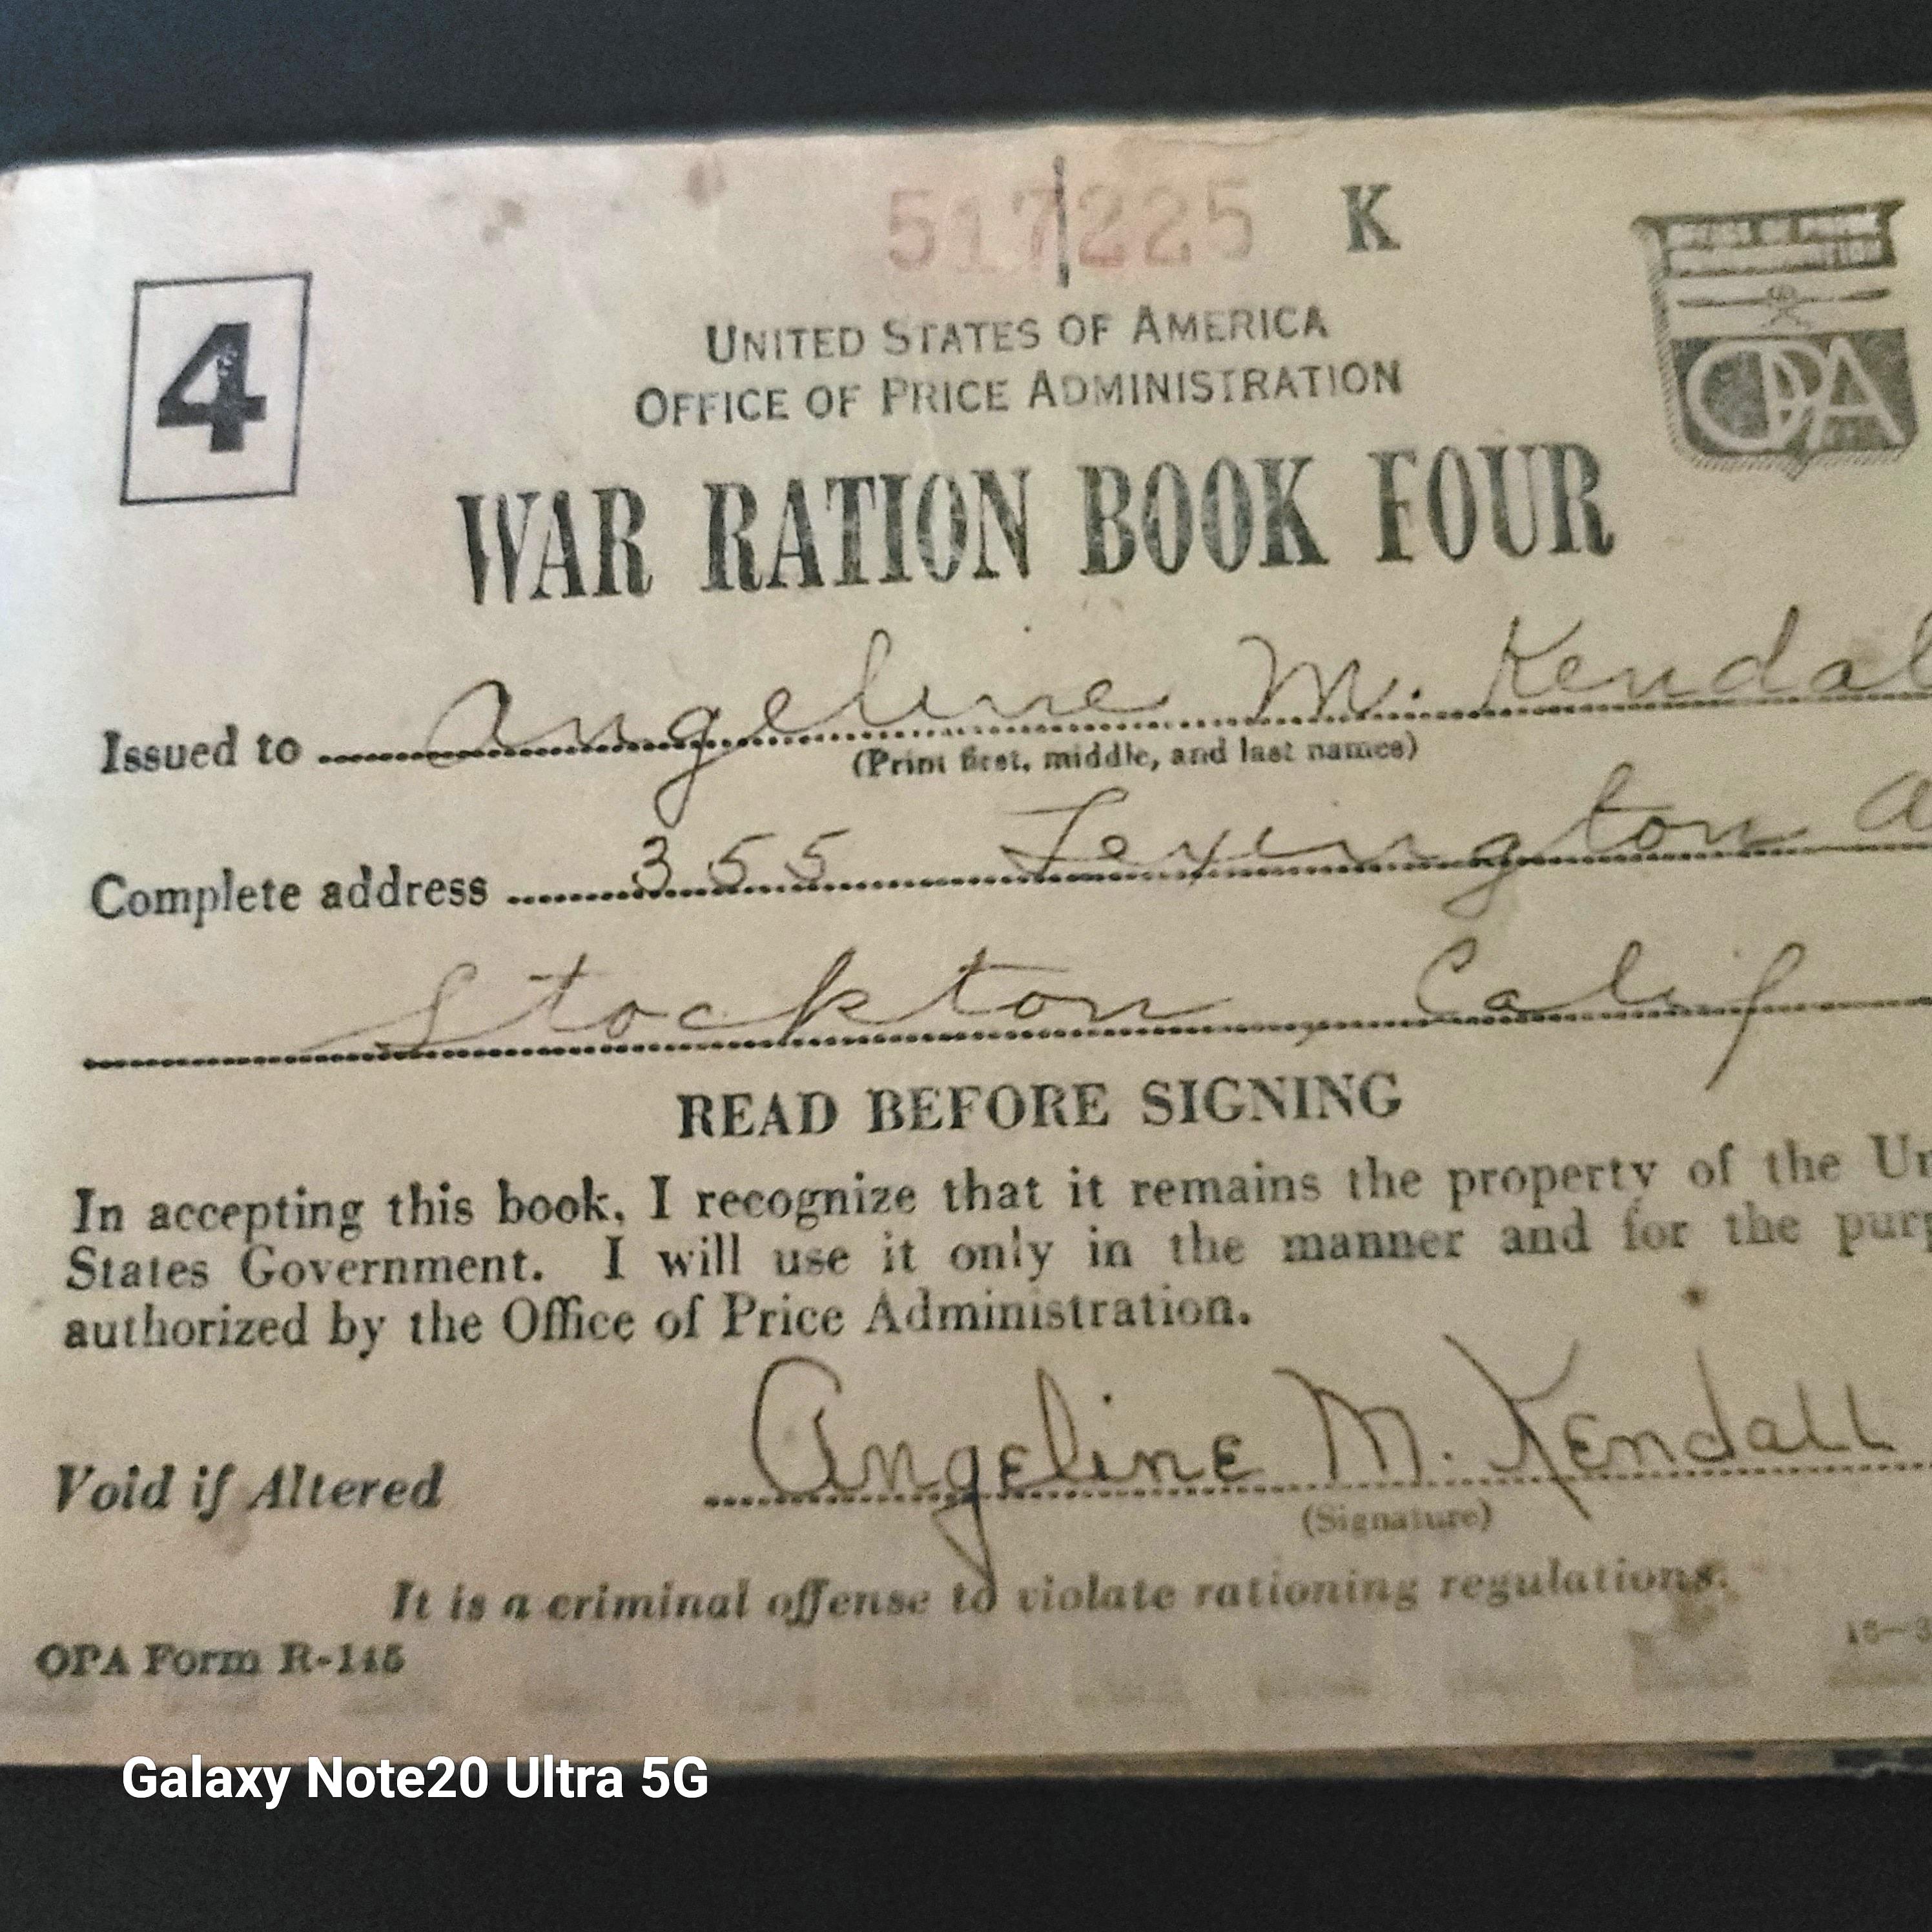 517225 K
4
UNITED STATES OF AMERICA
OFFICE OF PRICE ADMINISTRATION
OFFICE OF PRICE
ADMINISTRATION
OPA
WAR RATION BOOK FOUR
Issued to Angeline M. Kendal
(Print first, middle, and last names)
Complete address 355 Lexington A
Stockton, Calif
READ BEFORE SIGNING
In accepting this book, I recognize that it remains the property of the Un
States Government. I will use it only in the manner and for the purp
authorized by the Office of Price Administration.
Void if Altered Angeline M. Kendall
(Signature)
It is a criminal offense to violate rationing regulations.
OPA Form R-145
Galaxy Note20 Ultra 5G